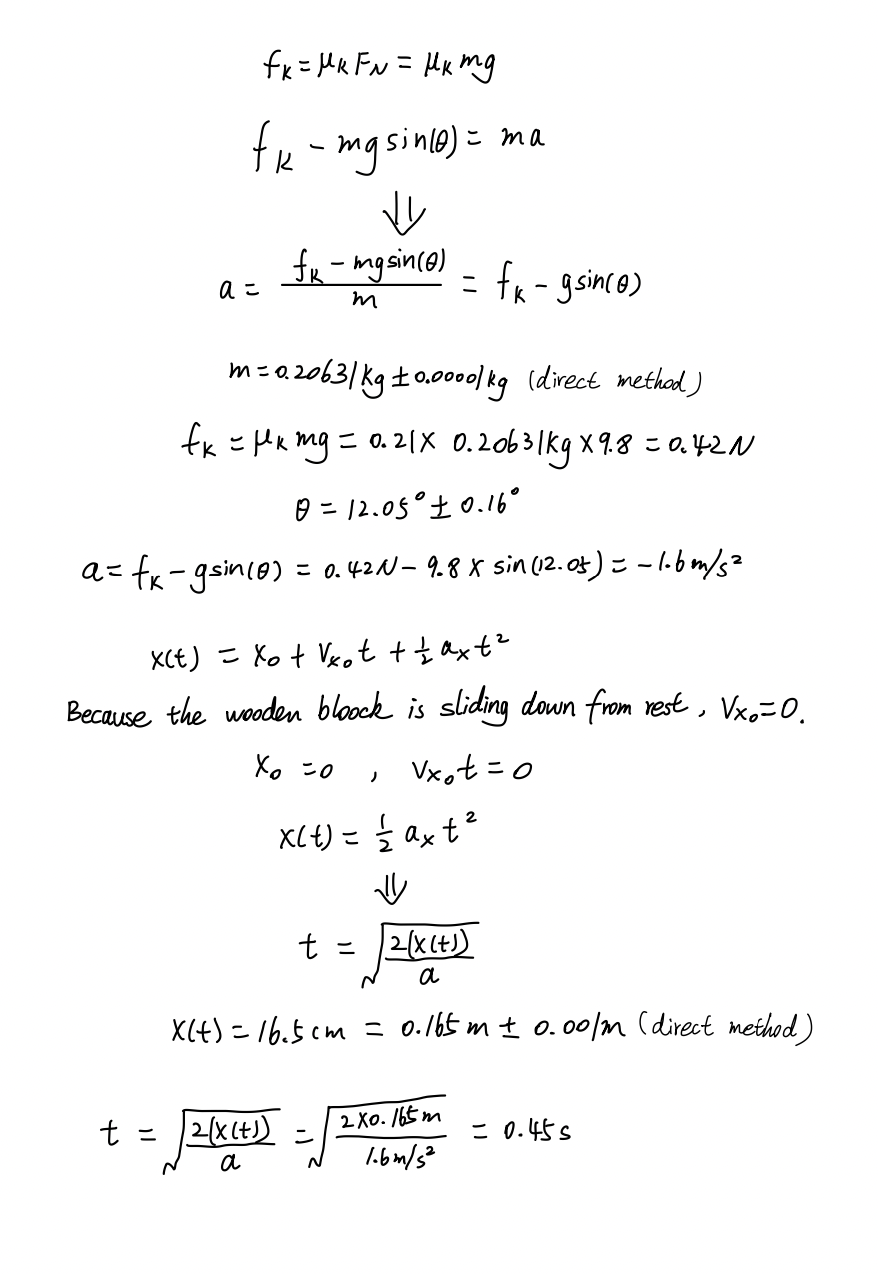 f_K = μ_K F_N = μ_K mg
f_K - mg sin(θ) = ma
⇓
a = \frac{f_K - mg sin(θ)}{m} = f_K - g sin(θ)
m = 0.20631 kg ± 0.00001 kg (direct method)
f_K = μ_K mg = 0.21 × 0.20631 kg × 9.8 = 0.42 N
θ = 12.05° ± 0.16°
a = f_K - g sin(θ) = 0.42 N - 9.8 × sin(12.05) = -1.6 m/s²
x(t) = x₀ + Vx₀t + ½ aₓt²
Because the wooden bloock is sliding down from rest, Vx₀=0.
X₀ = 0 , Vx₀t = 0
x(t) = ½ aₓ t²
⇓
t = √(\frac{2(x(t))}{a})
X(t) = 16.5 cm = 0.165 m ± 0.001 m (direct method)
t = √(\frac{2(x(t))}{a}) = √(\frac{2×0.165 m}{1.6 m/s²}) = 0.45 s